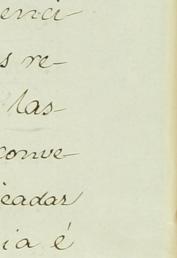 enci
s re-
las
conve-
eadas
ia é